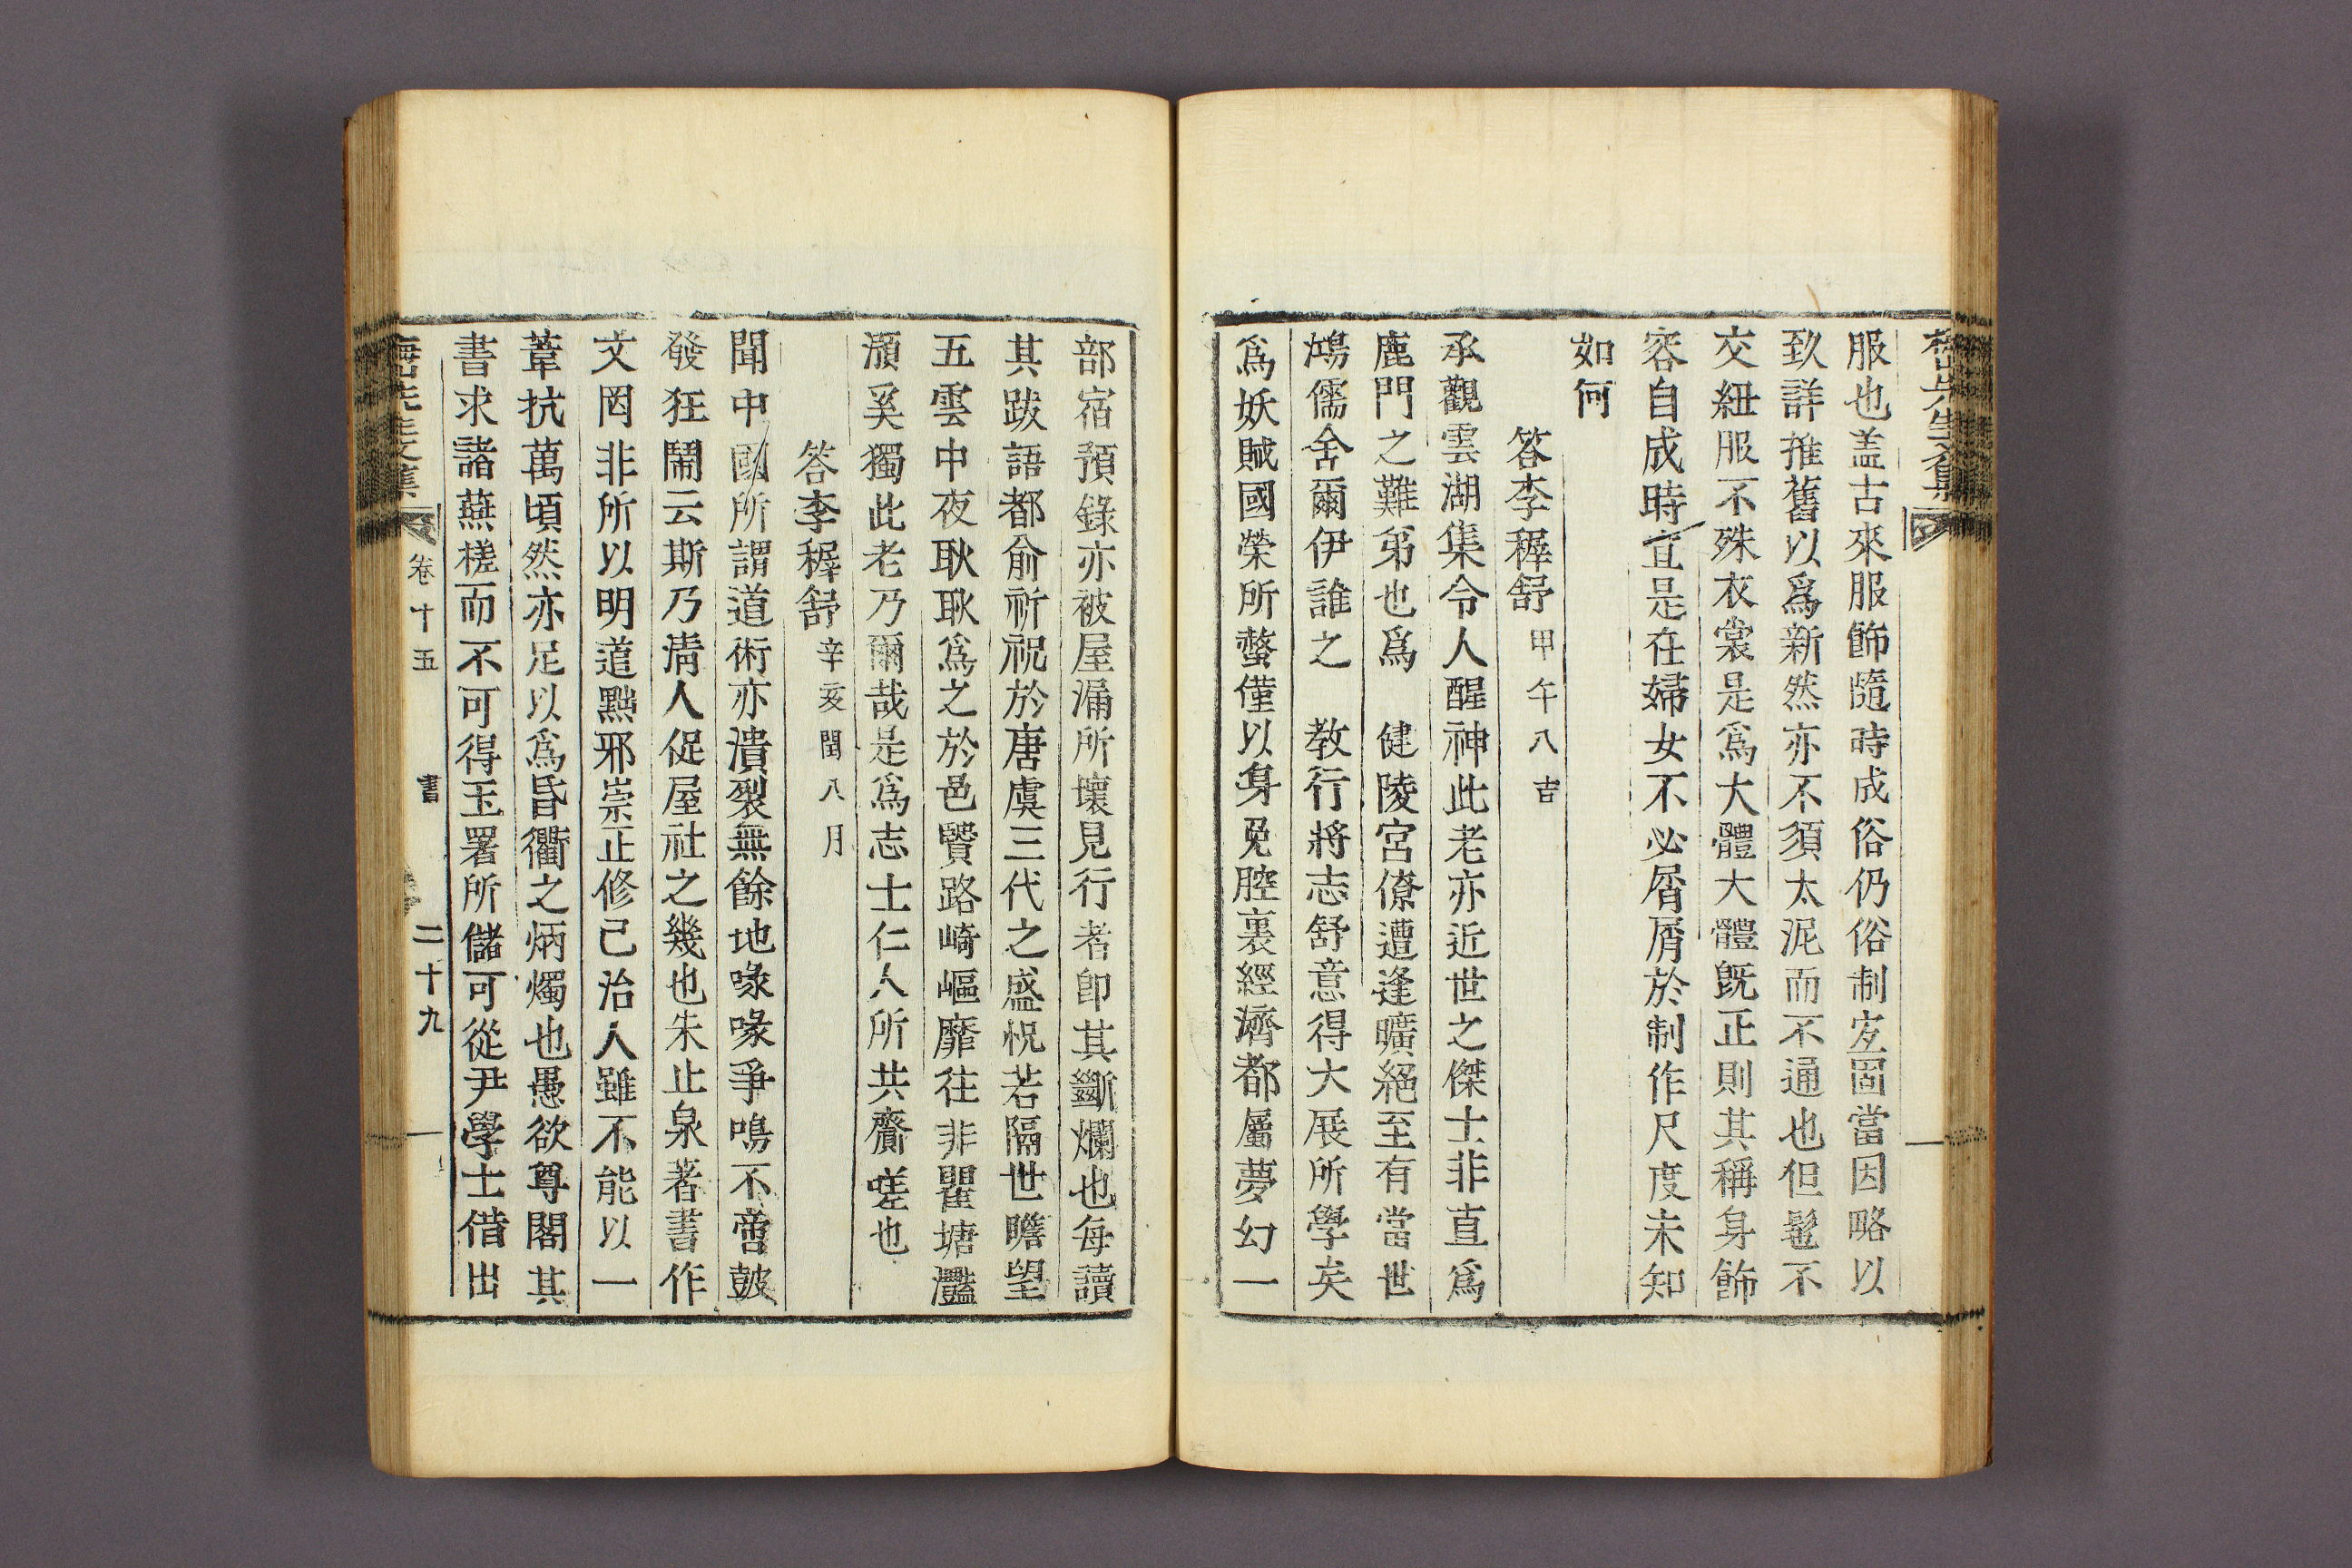 服也盖古來服飾隨時成俗仍俗制㝎固當因略以
致詳推舊以爲新然亦不須太泥而不通也但髢不
交紐服不殊衣裳是爲大體大體旣正則其稱身飾
容自成時宜是在婦女不必屑屑於制作尺度未知
如何
答李穉舒甲午八吉
承觀雲湖集令人醒神此老亦近世之傑士非直爲
鹿門之難弟也爲 健陵宮僚遭逢曠絕至有當世
鴻儒舍爾伊誰之 教行將志舒意得大展所學矣
爲妖賊國榮所螫僅以身免腔裏經濟都屬夢幻一
部宿預錄亦被屋漏所壞見行者卽其斷爛也每讀
其跋語都俞祈祝於唐虞三代之盛怳若隔世瞻望
五雲中夜耿耿爲之於邑賢路崎嶇靡往非瞿塘灩
澦奚獨此老乃爾哉是爲志士仁人所共齎嗟也
答李穉舒辛亥閏八月
聞中國所謂道術亦潰裂無餘地喙喙爭鳴不啻皷
發狂鬧云斯乃淸人促屋社之幾也朱止泉著書作
文罔非所以明道黜邪崇正修己治人雖不能以一
葦抗萬頃然亦足以爲昏衢之炳燭也愚欲尊閣其
書求諸蕪槎而不可得玉署所儲可從尹學士借出
卷十五 書 二十九